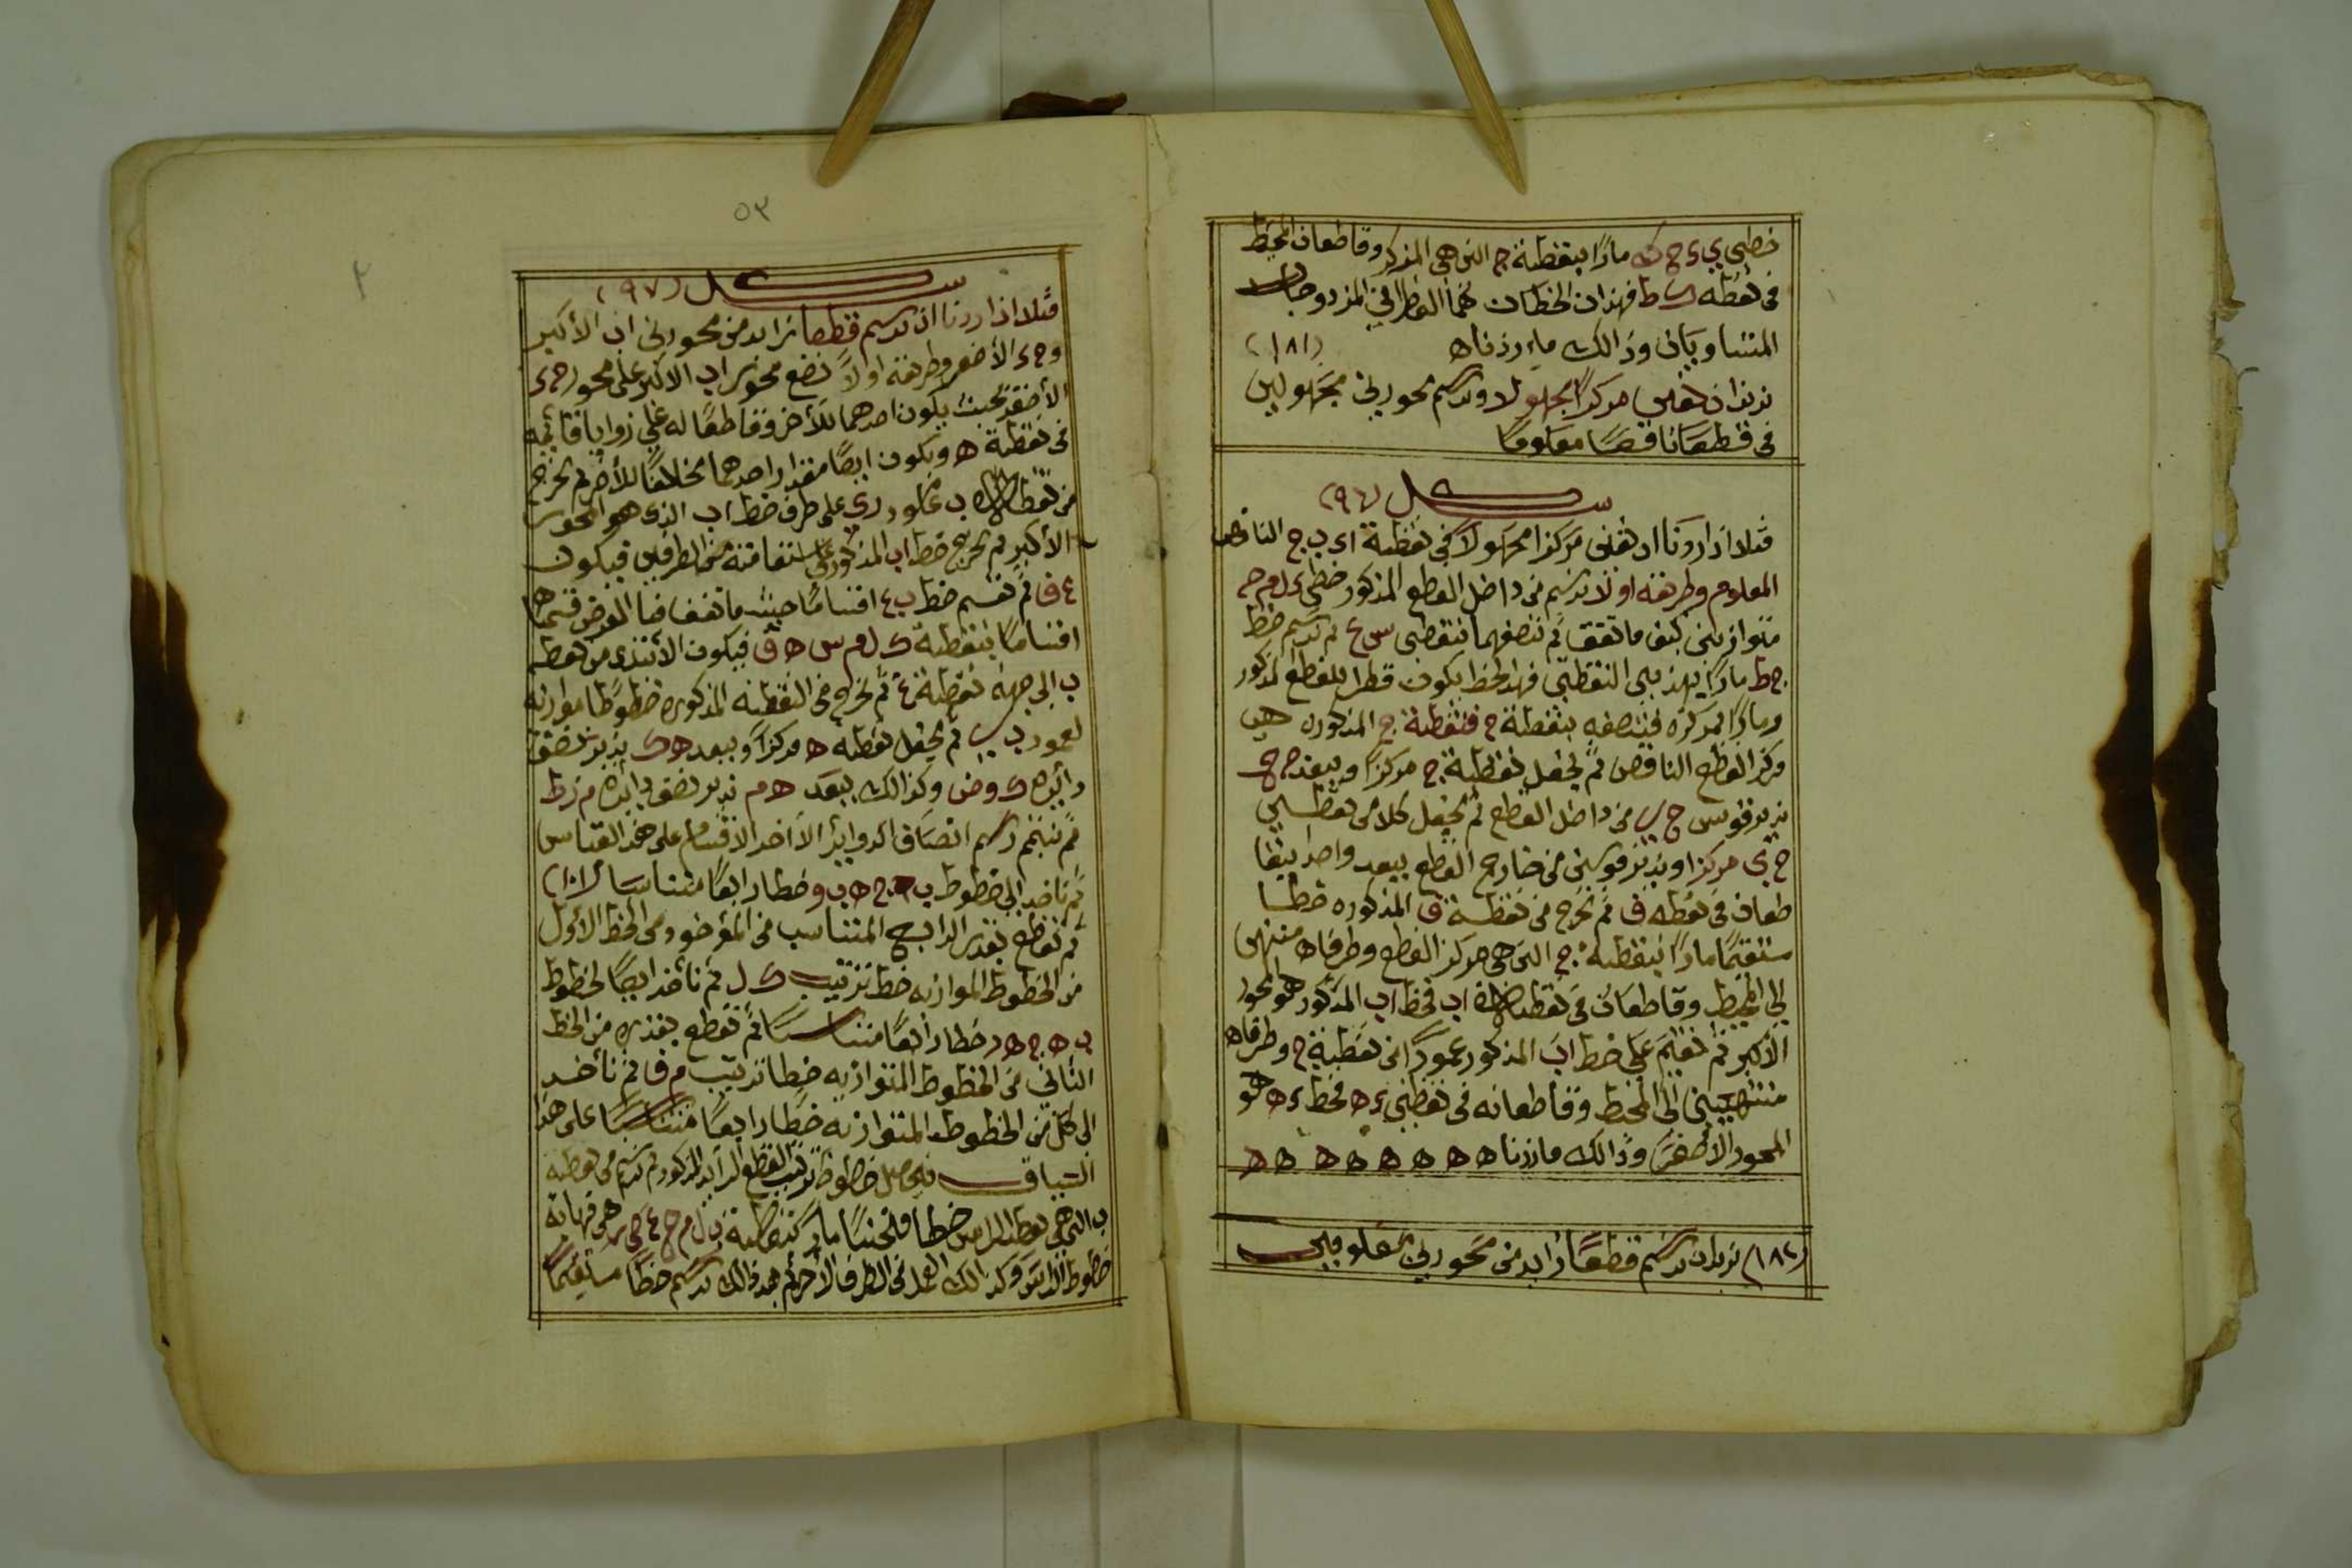 خطي ي ي ء ح ك مارًا بنقطة ج التي هي المذكر وقاطعان المحيط
في نقطه ك ط فهذان الخطان هما القطر المزدوجان
المتساويان وذالك ما اردناه (١٨١)
نريد ان نعين مركزا مجهولا ونرسم محورين مجهولين
في قطعا ناقصًا معلومًا
شكل (٩٦)
مثلا اذا اردنا ان نعين مركزا مجهولا في نقطة ا ء ب ج الناقص
المعلوم وطريقه اولا نرسم من داخل القطع المذكور خطي ء ل م ح
متوازيين كيف ما تفق ثم ننصفهما بنقطي س ع ثم نرسم خط
ج ط مارًا بهذين النقطتي فهذا الخط يكون قطرا للقطع المذكور
ومارًا بمركزه فننصفه بنقطة ج فنقطة ج المذكوره هي
مركز القطع الناقص ثم نجعل نقطة ج مركزًا وببعد ج ح
ندير قوس ح ي من داخل القطع ثم نجعل كلا من نقطتي
ح ي مركزا وندير قوسين من خارج القطع ببعد واحد يتقا
طعان في نقطه ف ثم نخرج من نقطة ف المذكوره خطا
مستقيمًا مارًا بنقطة ج التي هي مركز القطع وطرفاه منتهيين
الى المحيط وقاطعان في نقطتا ا ب فخط ا ب المذكور هو المحور
الأكبر ثم نقيم على خط ا ب المذكور عمودًا في نقطة ج وطرفاه
منتهيين الى المحيط وقاطعانه في نقطتي ء ه فخط ء ه هو
المحور الأصغر وذالك ما اردناه ه ه ه ه ه ه ه
(١٨٢) نريد ان نرسم قطعًا زايد من محورين معلومين
٥٣
٢
شكل (٩٧)
مثلا اذا اردنا ان نرسم قطعا زايد من محورين ا ب الأكبر
و ج ء الأصغر وطريقه اولاً نضع محور ا ب الاكبر على محور ج ء
الأصغر بحيث يكون احدهما للأخر وقاطعًا له على زوايا قائمه
في نقطة ه ويكون ايضًا مقدار احدهما مخالفًا للأخر ثم نخرج
من نقطة ب عمود ب ي على طرف خط ا ب الذي هو المحور
الأكبر ثم نخرج خط ا ب المذكور على استقامته من الطرفين فيكون
ع ف ثم نقسم خط ب ع اقسامًا حيث ما تفق فنا الفرض قسمها
اقسامًا بنقطة ك ل م س ه ق فيكون الأبتدى من نقطة
ب الى جهة نقطة ع ثم نخرج من النقطه المذكوره خطوطًا موازيه
لعمود ب ي ثم نجعل نقطه ه مركزًا وببعد ه ك ندير نصف
دائره ك و ض وكذالك ببعد ه م ندير نصف دائره م ز ط
ثم نتمم رسم انصاف الدواير الأخر الاقسام على هذ القياس
ثم ناخد الى خطوط ب ج ه ب و خطا رابعًا متناسبا (١٠١)
ثم نقطع بقدر الرابع المتناسب من المؤخود من الخط الأول
من الخطوط الموازيه خط ترتيب ك ل ثم نأخد ايضًا لخطوط
ب ه ج ه د خطا رابعًا متناسبًا ثم نقطع بقدره من الخط
الثاني من الخطوط المتوازيه خطا ترتيب م ق ثم نأخد
الى كل من الخطوط المتوازيه خطًا رابعًا متناسبًا على هذا
السياق فيحصل خطوط ترتيب القطع الزايد المذكور ثم نرسم من نقطة
ب التي هي نقطة الراس خطا منحنيًا مارًا بنقطة ل م ح ع ي هي نهاية
خطوط الترتيب وكذالك العمل في الطرف الأخر ثم بعد ذالك نرسم خطًا مستقيمًا